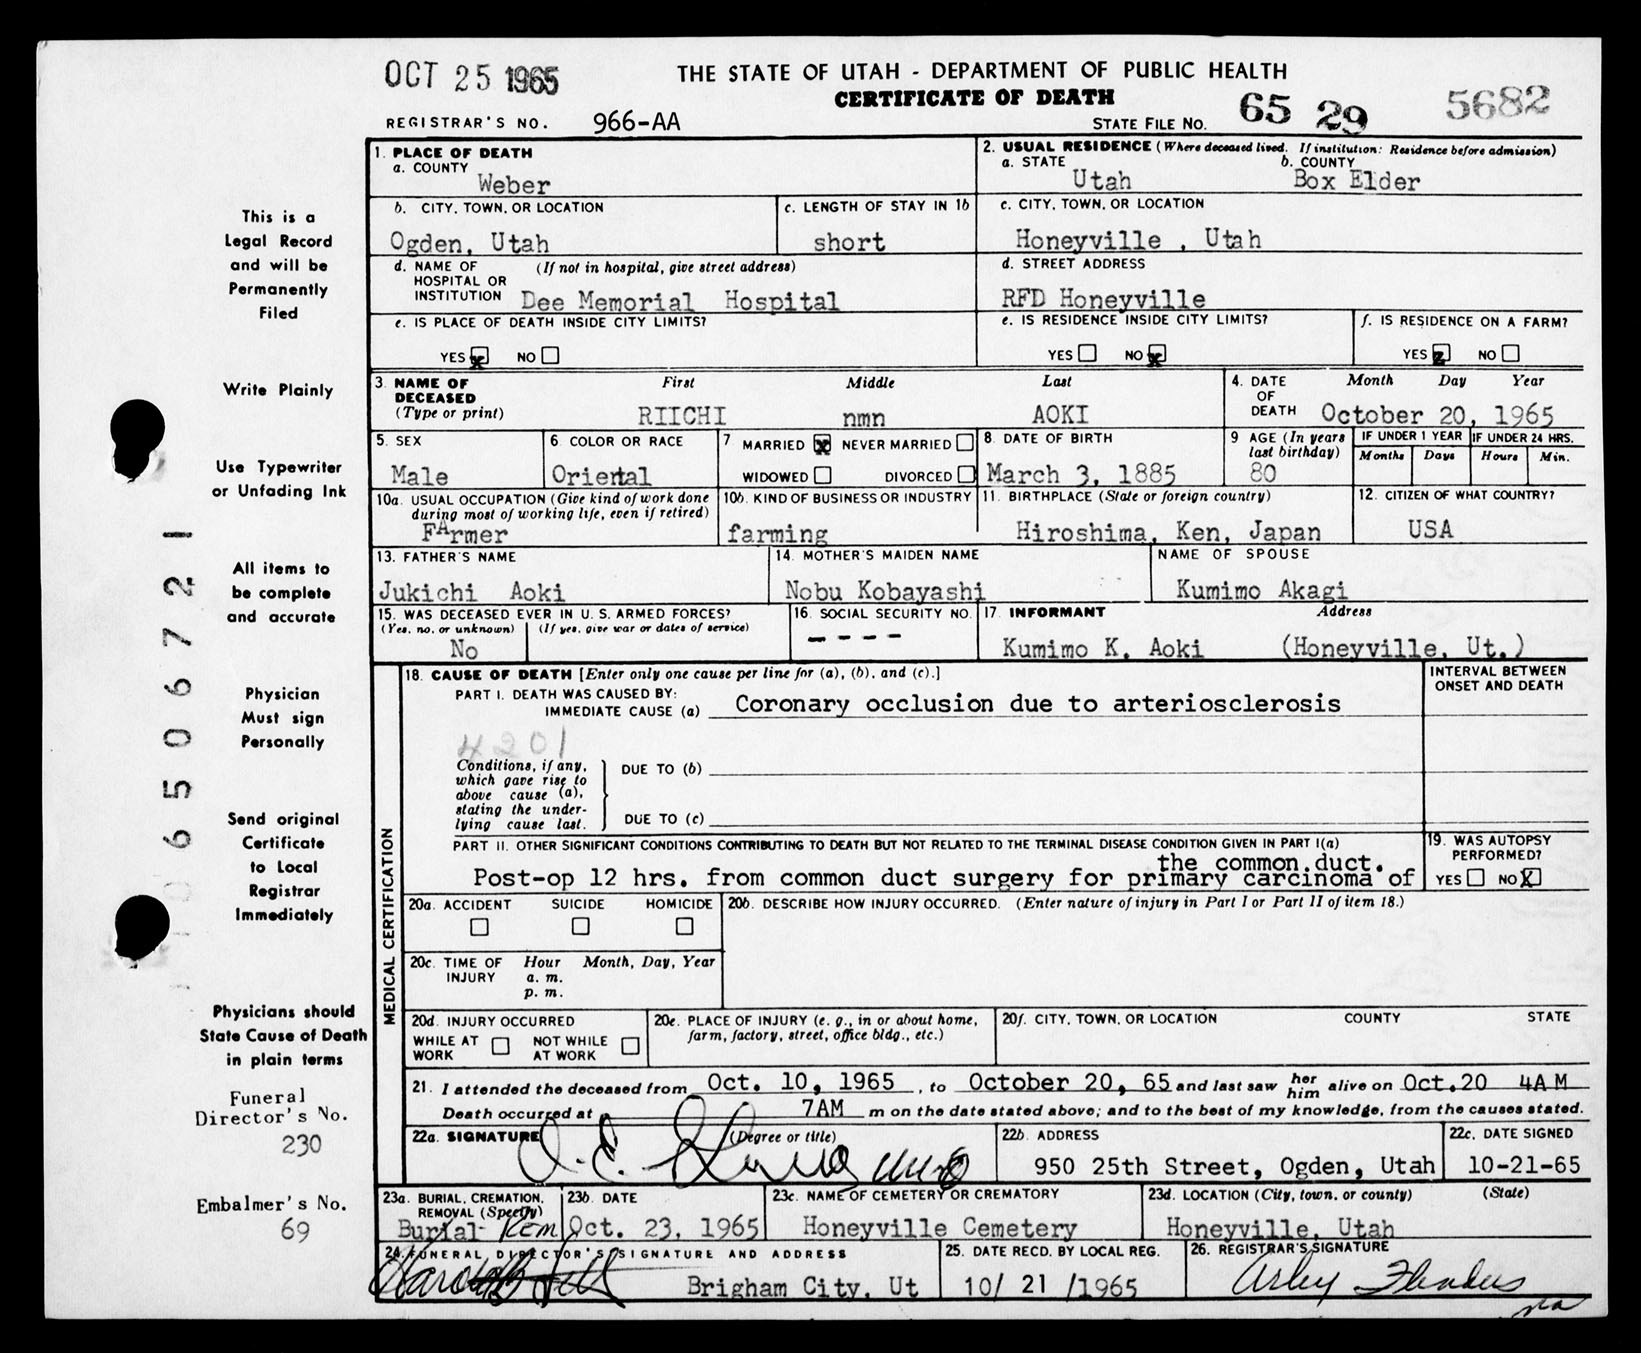 OCT 25 1965
THE STATE OF UTAH - DEPARTMENT OF PUBLIC HEALTH
CERTIFICATE OF DEATH
REGISTRAR'S NO. 966-AA
STATE FILE NO. 65 29 5682
1. PLACE OF DEATH
a. COUNTY
Weber
2. USUAL RESIDENCE (Where deceased lived. If institution: Residence before admission)
a. STATE b. COUNTY
Utah Box Elder
b. CITY, TOWN, OR LOCATION
Ogden, Utah
c. LENGTH OF STAY IN 1b
short
c. CITY, TOWN, OR LOCATION
Honeyville , Utah
d. NAME OF (If not in hospital, give street address)
HOSPITAL OR
INSTITUTION Dee Memorial Hospital
d. STREET ADDRESS
RFD Honeyville
e. IS PLACE OF DEATH INSIDE CITY LIMITS?
YES x NO
e. IS RESIDENCE INSIDE CITY LIMITS?
YES NO x
f. IS RESIDENCE ON A FARM?
YES NO
3. NAME OF First Middle Last
DECEASED
(Type or print) RIICHI nmn AOKI
4. DATE Month Day Year
OF
DEATH October 20, 1965
5. SEX
Male
6 COLOR OR RACE
Oriental
7 MARRIED x NEVER MARRIED
WIDOWED DIVORCED
8. DATE OF BIRTH
March 3, 1885
9 AGE (In years
last birthday)
80
IF UNDER 1 YEAR IF UNDER 24 HRS.
Months Days Hours Min.
10a. USUAL OCCUPATION (Give kind of work done
during most of working life, even if retired)
FArmer
10b. KIND OF BUSINESS OR INDUSTRY
farming
11. BIRTHPLACE (State or foreign country)
Hiroshima, Ken, Japan
12. CITIZEN OF WHAT COUNTRY?
USA
13. FATHER'S NAME
Jukichi Aoki
14. MOTHER'S MAIDEN NAME
Nobu Kobayashi
NAME OF SPOUSE
Kumimo Akagi
15. WAS DECEASED EVER IN U.S. ARMED FORCES?
(Yes, no, or unknown) (If yes, give war or dates of service)
No
16. SOCIAL SECURITY NO.
- - - -
17. INFORMANT Address
Kumimo K. Aoki (Honeyville, Ut.)
MEDICAL CERTIFICATION
18. CAUSE OF DEATH [Enter only one cause per line for (a), (b), and (c).]
INTERVAL BETWEEN
ONSET AND DEATH
PART I. DEATH WAS CAUSED BY:
IMMEDIATE CAUSE (a) Coronary occlusion due to arteriosclerosis
4201
Conditions, if any,
which gave rise to
above cause (a),
stating the under-
lying cause last.
DUE TO (b)
DUE TO (c)
PART II. OTHER SIGNIFICANT CONDITIONS CONTRIBUTING TO DEATH BUT NOT RELATED TO THE TERMINAL DISEASE CONDITION GIVEN IN PART I(a)
the common duct.
Post-op 12 hrs. from common duct surgery for primary carcinoma of
19. WAS AUTOPSY
PERFORMED?
YES NO X
20a. ACCIDENT SUICIDE HOMICIDE
20b. DESCRIBE HOW INJURY OCCURRED. (Enter nature of injury in Part I or Part II of item 18.)
20c. TIME OF Hour Month, Day, Year
INJURY a. m.
p. m.
20d. INJURY OCCURRED
WHILE AT NOT WHILE
WORK AT WORK
20e. PLACE OF INJURY (e. g., in or about home,
farm, factory, street, office bldg., etc.)
20f. CITY, TOWN, OR LOCATION COUNTY STATE
21. I attended the deceased from Oct. 10, 1965, to October 20, 65 and last saw her him alive on Oct.20 4AM
Death occurred at 7AM m on the date stated above; and to the best of my knowledge, from the causes stated.
22a. SIGNATURE (Degree or title)
22b. ADDRESS
950 25th Street, Ogden, Utah
22c. DATE SIGNED
10-21-65
23a. BURIAL, CREMATION,
REMOVAL (Specify)
Burial- Rem
23b. DATE
Oct. 23, 1965
23c. NAME OF CEMETERY OR CREMATORY
Honeyville Cemetery
23d. LOCATION (City, town, or county) (State)
Honeyville, Utah
24. FUNERAL DIRECTOR'S SIGNATURE AND ADDRESS
Brigham City, Ut
25. DATE RECD. BY LOCAL REG.
10/ 21 /1965
26. REGISTRAR'S SIGNATURE
This is a
Legal Record
and will be
Permanently
Filed
Write Plainly
Use Typewriter
or Unfading Ink
All items to
be complete
and accurate
Physician
Must sign
Personally
Send original
Certificate
to Local
Registrar
Immediately
Physicians should
State Cause of Death
in plain terms
Funeral
Director's No.
230
Embalmer's No.
69